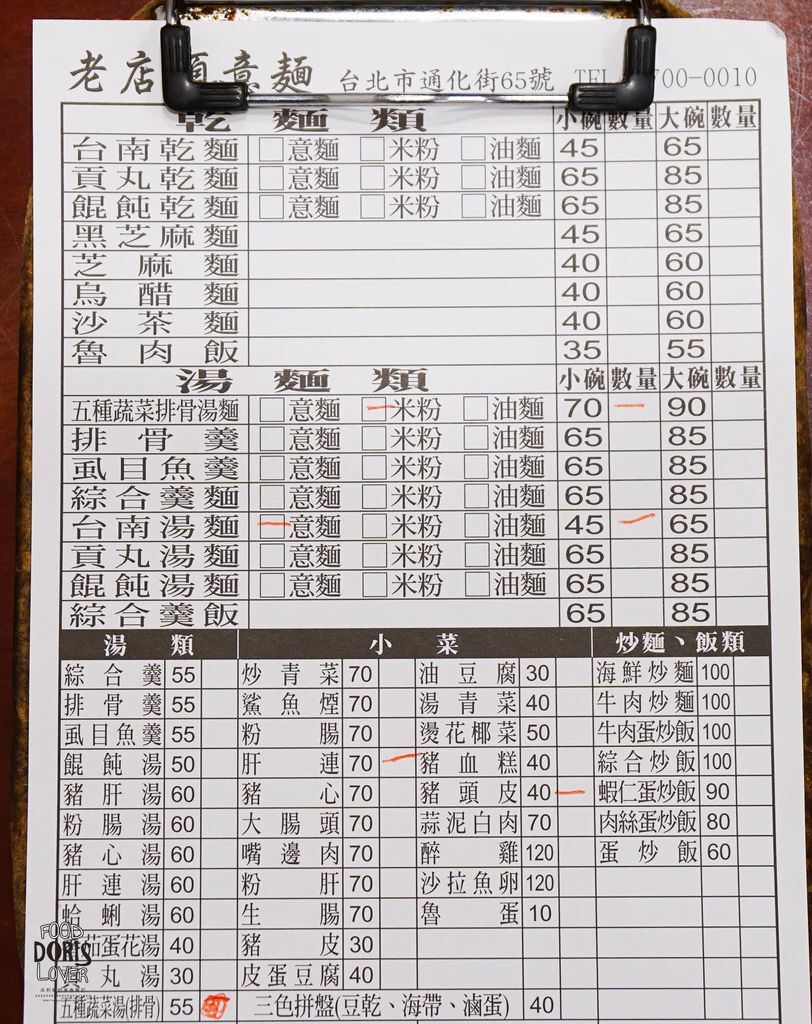 老店 意麵 台北市通化街65號 TEL 700-0010
乾麵類 小碗 數量 大碗 數量
台南乾麵 □意麵 □米粉 □油麵 45 65
貢丸乾麵 □意麵 □米粉 □油麵 65 85
餛飩乾麵 □意麵 □米粉 □油麵 65 85
黑芝麻麵 45 65
芝麻麵 40 60
烏醋麵 40 60
沙茶麵 40 60
魯肉飯 35 55
湯麵類 小碗 數量 大碗 數量
五種蔬菜排骨湯麵 □意麵 □米粉 □油麵 70 一 90
排骨羹 □意麵 □米粉 □油麵 65 85
虱目魚羹 □意麵 □米粉 □油麵 65 85
綜合羹麵 □意麵 □米粉 □油麵 65 85
台南湯麵 □意麵 □米粉 □油麵 45 一 65
貢丸湯麵 □意麵 □米粉 □油麵 65 85
餛飩湯麵 □意麵 □米粉 □油麵 65 85
綜合羹飯 65 85
湯類 小菜 炒麵、飯類
綜合羹 55 炒青菜 70 油豆腐 30 海鮮炒麵 100
排骨羹 55 鯊魚煙 70 湯青菜 40 牛肉炒麵 100
虱目魚羹 55 粉腸 70 燙花椰菜 50 牛肉蛋炒飯 100
餛飩湯 50 肝連 70 一 豬血糕 40 綜合炒飯 100
豬肝湯 60 豬心 70 豬頭皮 40 一 蝦仁蛋炒飯 90
粉腸湯 60 大腸頭 70 蒜泥白肉 70 肉絲蛋炒飯 80
豬心湯 60 嘴邊肉 70 醉雞 120 蛋炒飯 60
肝連湯 60 粉肝 70 沙拉魚卵 120
蛤蜊湯 60 生腸 70 魯蛋 10
茄蛋花湯 40 豬皮 30
丸湯 30 皮蛋豆腐 40
五種蔬菜湯(排骨) 55 三色拼盤(豆乾、海帶、滷蛋) 40
FOOD
DORIS
LOVER